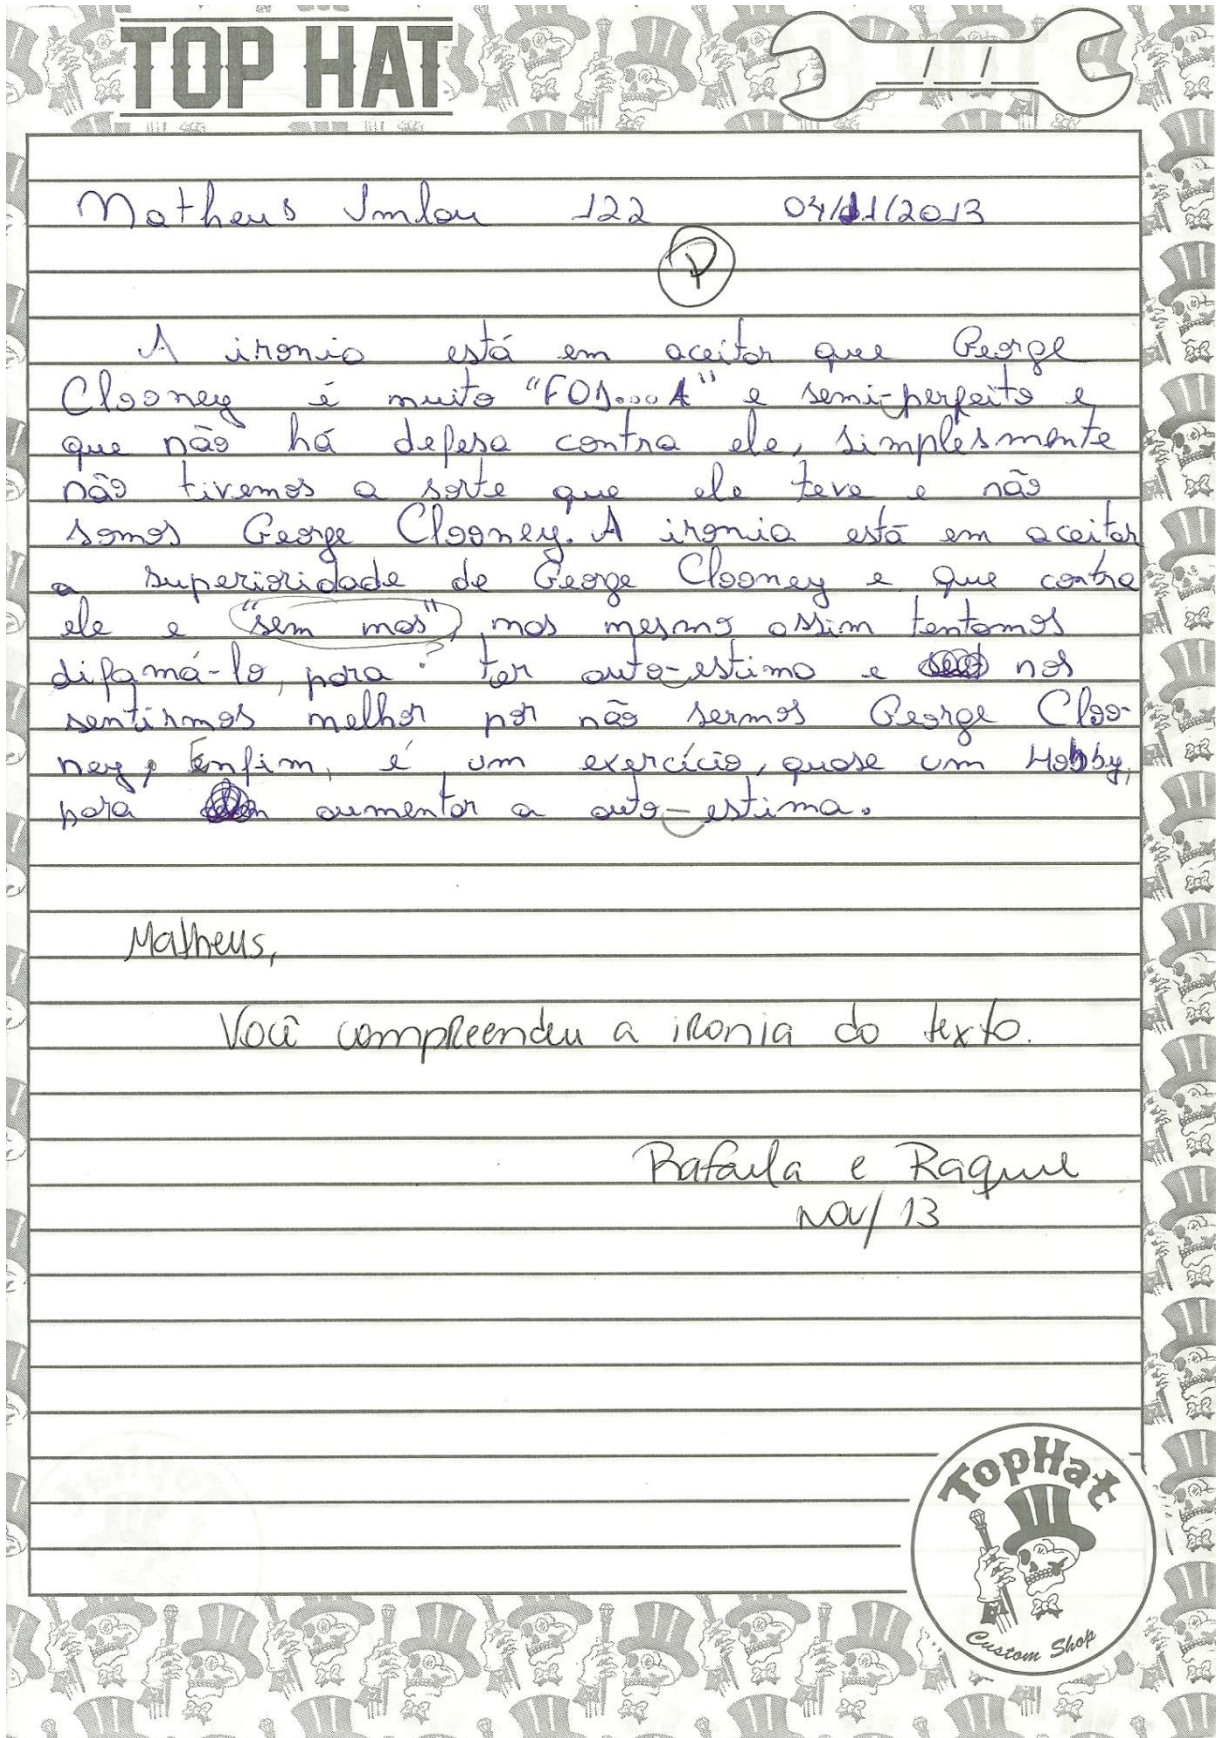 TOP HAT
Matheus 122 04/11/2013
P
A ironia está em aceitar que George
Clooney é muito "FOD...A" e semi-perfeito e
que não há defesa contra ele, simplesmente
não tivemos a sorte que ele teve e não
somos George Clooney. A ironia está em aceitar
a superioridade de George Clooney e que contra
ele e "sem mas", mas mesmo assim tentamos
?
difamá-lo, para ter auto-estima e nos
sentirmos melhor por não sermos George Cloo-
ney, Enfim, é um exercício, quase um Hobby,
para aumentar a auto-estima.
Matheus,
Você compreendeu a ironia do texto.
Rafaela e Raquel
nov/13
TopHat
Custom Shop